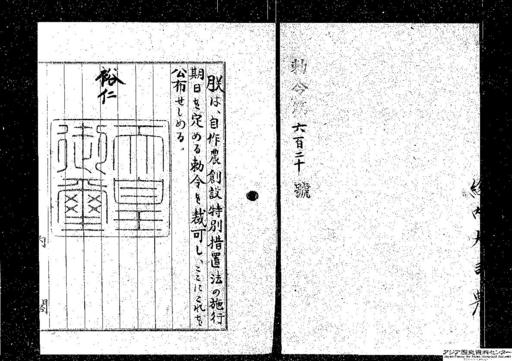 勅令第六百二十號
朕は、自作農創設特別措置法の施行
期日を定める勅令を裁可し、ここにこれを
公布せしめる。
裕仁
天皇
御璽
内閣
アジア歴史資料センター